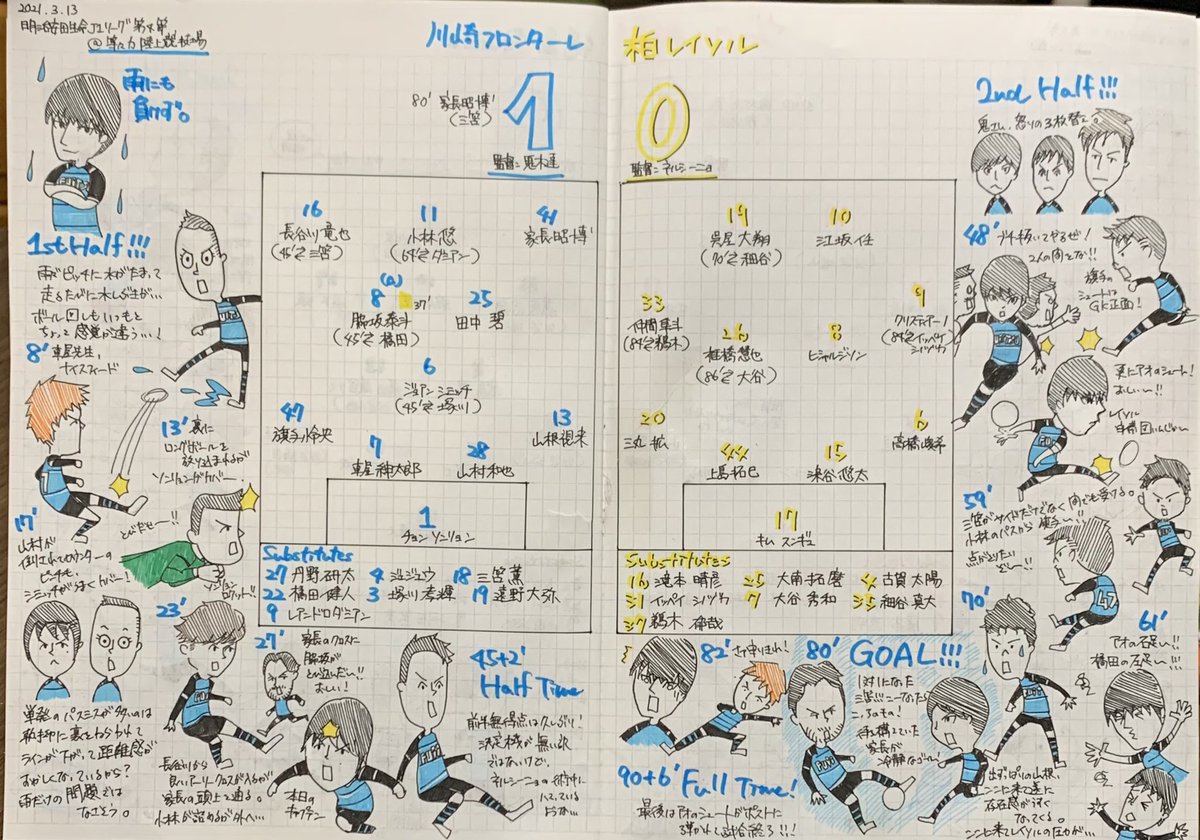 2021.3.13
明治安田生命J1リーグ 第
@等々力陸上競技場
雨にも
負けず。
川崎フロンターレ
柏レイソル
80' 家長昭博
(三笘)
1
0
監督:鬼木達
監督:ネルシーニョ
1st Half!!!
雨でピッチに水がたまって
走るたびに水しぶきが…
ボール回しもいつもと
ちょっと感覚が違う…!
8' 車屋先生、
ナイスフィード
13' 裏に
ロングボールを
放り込まれるが
ソンリョンがカバー
とびだせー!!
17'
山村が
倒されてカウンターの
ピンチも、
シミッチがうまくカバー!
単発のパスミスが多いのは
ラインが下がって距離感が
おかしくなっているから?
雨だけの問題では
なさそう。
23'
長谷川から
良いアーリークロスが入るが
家長の頭上を通る。
小林が詰めるが外へ…
27'
家長のクロスに
脇坂が
とび込んだ!!
おしい!
本日の
キャプテン
45+2'
Half Time
前半無得点は久しぶり!
決定機が無い訳
ではないけど、
ネルシーニョの術中に
16
長谷川竜也
(45'⇄三笘)
11
小林悠
(64'⇄ダミアン)
41
家長昭博
(a)
8 37'
脇坂泰斗
(45'⇄橘田)
25
田中碧
6
ジョアンシミッチ
(45'⇄塚川)
47
旗手怜央
7
車屋紳太郎
28
山村和也
13
山根視来
1
チョンソンリョン
Substitutes
27 丹野研太 4 ジェジエウ 18 三笘薫
22 橘田健人 3 塚川孝輝 19 遠野大弥
9 レアンドロダミアン
19
呉屋大翔
(70'⇄細谷)
10
江坂任
33
仲間隼斗
(84'⇄鵜木)
26
椎橋慧也
(86'⇄大谷)
8
ヒシャルジソン
9
クリスティアーノ
(84'⇄イッペイ
シノヅカ)
20
三丸拡
44
上島拓巳
15
染谷悠太
6
高橋峻希
17
キムスンギュ
Substitutes
16 滝本晴彦 25 大南拓磨 4 古賀太陽
31 イッペイシノヅカ 7 大谷秀和 35 細谷真大
37 鵜木郁哉
2nd Half!!!
鬼さん、怒りの3枚替え。
48' ブチ抜いてやるぜ!
2人の間をな!!
旗手の
シュートは
GK正面!
更にアオのシュート!
おしいー!!
59'
三笘がサイドだけでなく間でも受ける。
小林のパスから旗手…!!
点がとりたい
ぞー!!
61'
アオの右足…!!
橘田の左足…!!
70'
出ずっぱりの山根、
ここに来て更に
存在感が増して
なってくる。
ここに来てレイソルの圧が…
80' GOAL!!!
1対1になった
三笘!!こーなったら
こっちのもの!
待ち構えていた
家長が
82' さぁ守りきれ!
90+6' Full Time!
最後はアオのシュートがポストに
弾かれて試合終了!!!